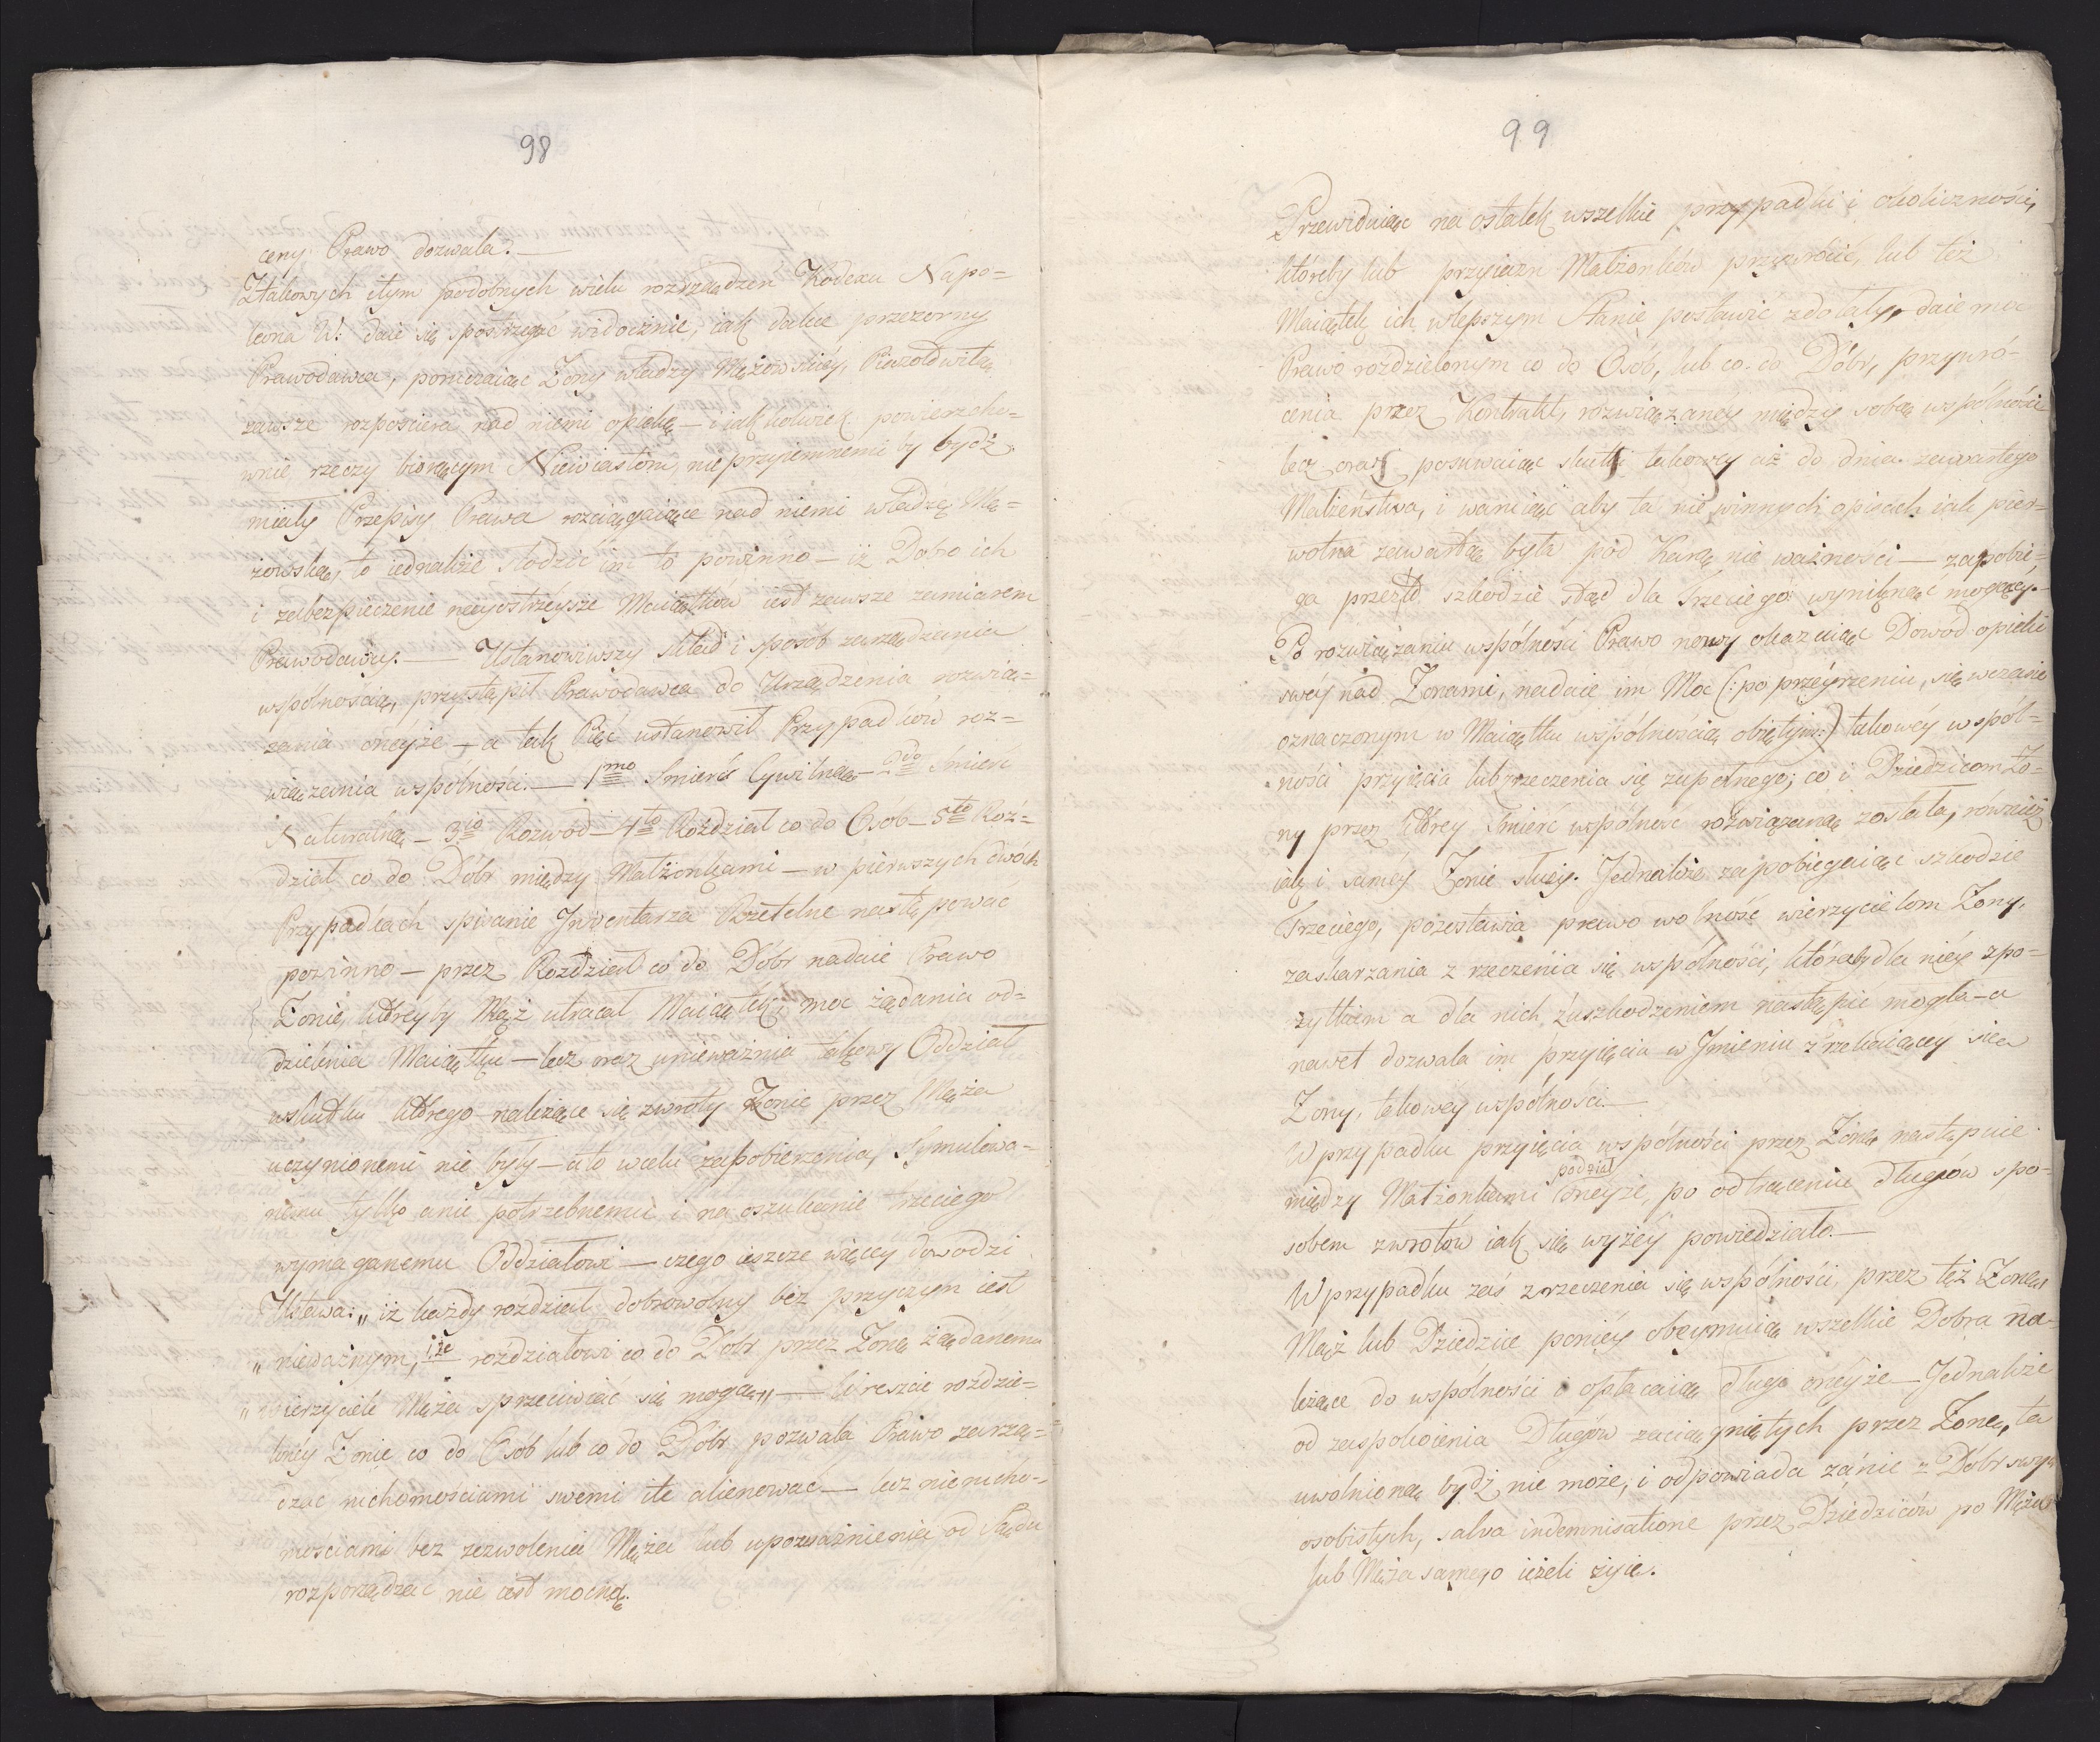 98
ceny Prawo dozwala. —
Ztakowych itym podobnych wielu rozrządzen Kodexu Napo=
leona W: daie się spostrzegać widocznie, iak dalece przezorny
Prawodawca, poruczaiąc Żony władzy Mężowskiéy, Pieczołowitą
zawsze rozpościera nad niemi opiekę — i iakkolwiek powierzcho=
wnie rzeczy biorącym Niewiastom, nieprzyiemnemi by bydź
miały Przepisy Prawa rozciągaiące nad niemi władzę Mę=
żowską, to iednakże słodzić im to powinno — iż Dobro ich
i zabezpieczenie nayostrzeysze Maiątków iest zawsze zamiarem
Prawodawcy. — Ustanowiwszy skład i sposób zarządzania
wspólnością, przystąpił Prawodawca do Urządzenia rozwią=
zania onéyże — a tak Pięć ustanowił Przypadków roz=
wiązania wspólności. — 1mo Śmierć Cywilna — 2do Śmierć
Naturalna — 3io Rozwód — 4to Rozdział co do Osób — 5to Roz=
dział co do Dóbr między Małżonkami — w pierwszych dwóch
Przypadkach spisanie Inwentarza Rzetelne następować
powinno — przez Rozdział co do Dóbr nadaie Prawo
Żonie, któréyby Mąż utracał Maiątek, moc żądania od=
dzielenia Maiątku — lecz oraz unieważnia takowy Oddział
wskutku którego należące się zwroty Żonie przez Męża
uczynionemi nie były — a to w celu zapobierzenia, Symulowa=
nemu tylko a nie potrzebnemu i na oszukanie trzeciego
wymaganemu Oddziałowi — czego ieszcze więcey dowodzi
Ustawa: „iż każdy rozdział dobrowolny bez przyczyn iest
„nieważnym, i że rozdziałowi co do Dóbr przez Żonę żądanemu
„Wierzyciele Męża sprzeciwiać się mogą„ — Wreszcie rozdzie=
lonéy Żonie co do Osób lub co do Dóbr pozwala Prawo zarzą=
dzać ruchomościami swemi i te alienować — lecz nierucho=
mościami bez zezwolenia Męża lub upoważnienia od Sądu
rozporządzać nie iest mocną.
99
Przewiduiąc na ostatek wszelkie przypadki i okoliczności,
któreby lub przyiaźn Małżonków przywrócić, lub też
Maiątek ich wlepszym Stanie postawić zdołały, daie moc
Prawo rozdzielonym co do Osób, lub co do Dóbr, przywró=
cenia przez Kontrakt, rozwiązanéy między sobą wspólności
lecz oraz posuwaiąc skutki takowéy aż do dnia zawartego
Małżeństwa, i waruiąc aby ta nie winnych opisach iak pier=
wotna zawartą była pod Karą nie ważności — zapobie=
ga przeto szkodzie stąd dla Trzeciego wyniknąć mogącéy. —
Po rozwiązaniu wspólności Prawo nowy okazuiąc Dowód opieki
swéy nad Żonami, nadaie im Moc (: po przéyrzeniu się wczasie
oznaczonym w Maiątku wspólnością obiętym :) takowéy wspól=
ności przyięcia lub zrzeczenia się zupełnego; co i Dziedzicom Żo=
ny przez któréy Śmierć wspólność rozwiązaną została, również
iak i saméy Żonie służy. Jednakże zapobiegaiąc szkodzie
Trzeciego, pozostawia prawo wolność wierzycielom Żony,
zaskarzania zrzeczenia się wspólności, któraby dla niéy z po=
żytkiem a dla nich z uszkodzeniem nastąpić mogła — a
nawet dozwala im przyięcia w Imieniu zrzekaiącey się
Żony, takowéy wspólności. —
W przypadku przyięcia wspólności przez Żonę następuie
podział
między Małżonkami onéyże, po odtrąceniu długów spo=
sobem zwrotów iak się wyżéy powiedziało. —
W przypadku zaś zrzeczenia się wspólności przez też Żonę
Mąż lub Dziedzice poniéy obeymuią wszelkie Dobra na=
leżące do wspólności i opłacaią długi onéyże — Jednakże
od zaspokoienia Długów zaciągniętych przez Żonę, ta
uwolnioną bydź nie może, i odpowiada zánie z Dóbr swych
osobistych, salva indemnisatione przez Dziedziców po Mężu
lub Męża samego ieżeli żyie.